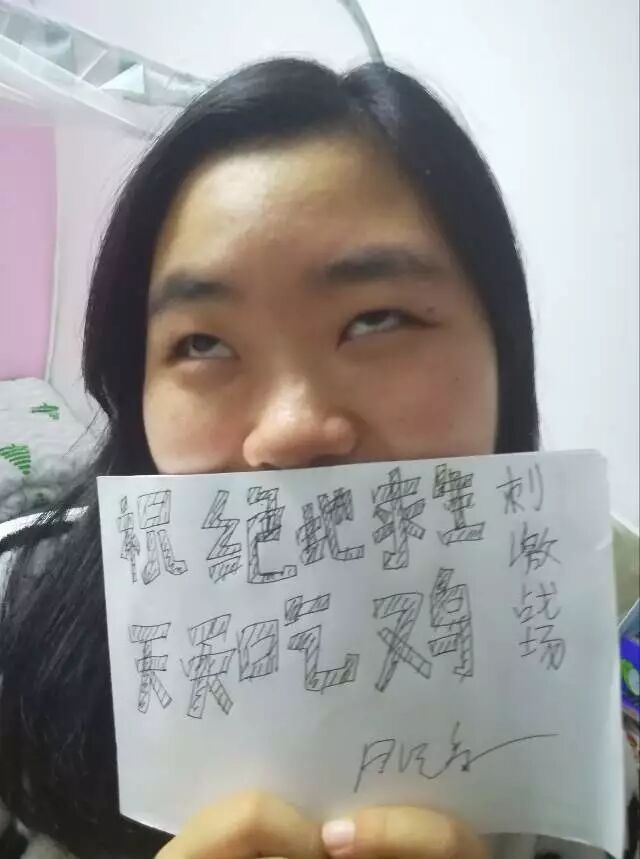 祝绝地求生
天天吃鸡
刺激战场